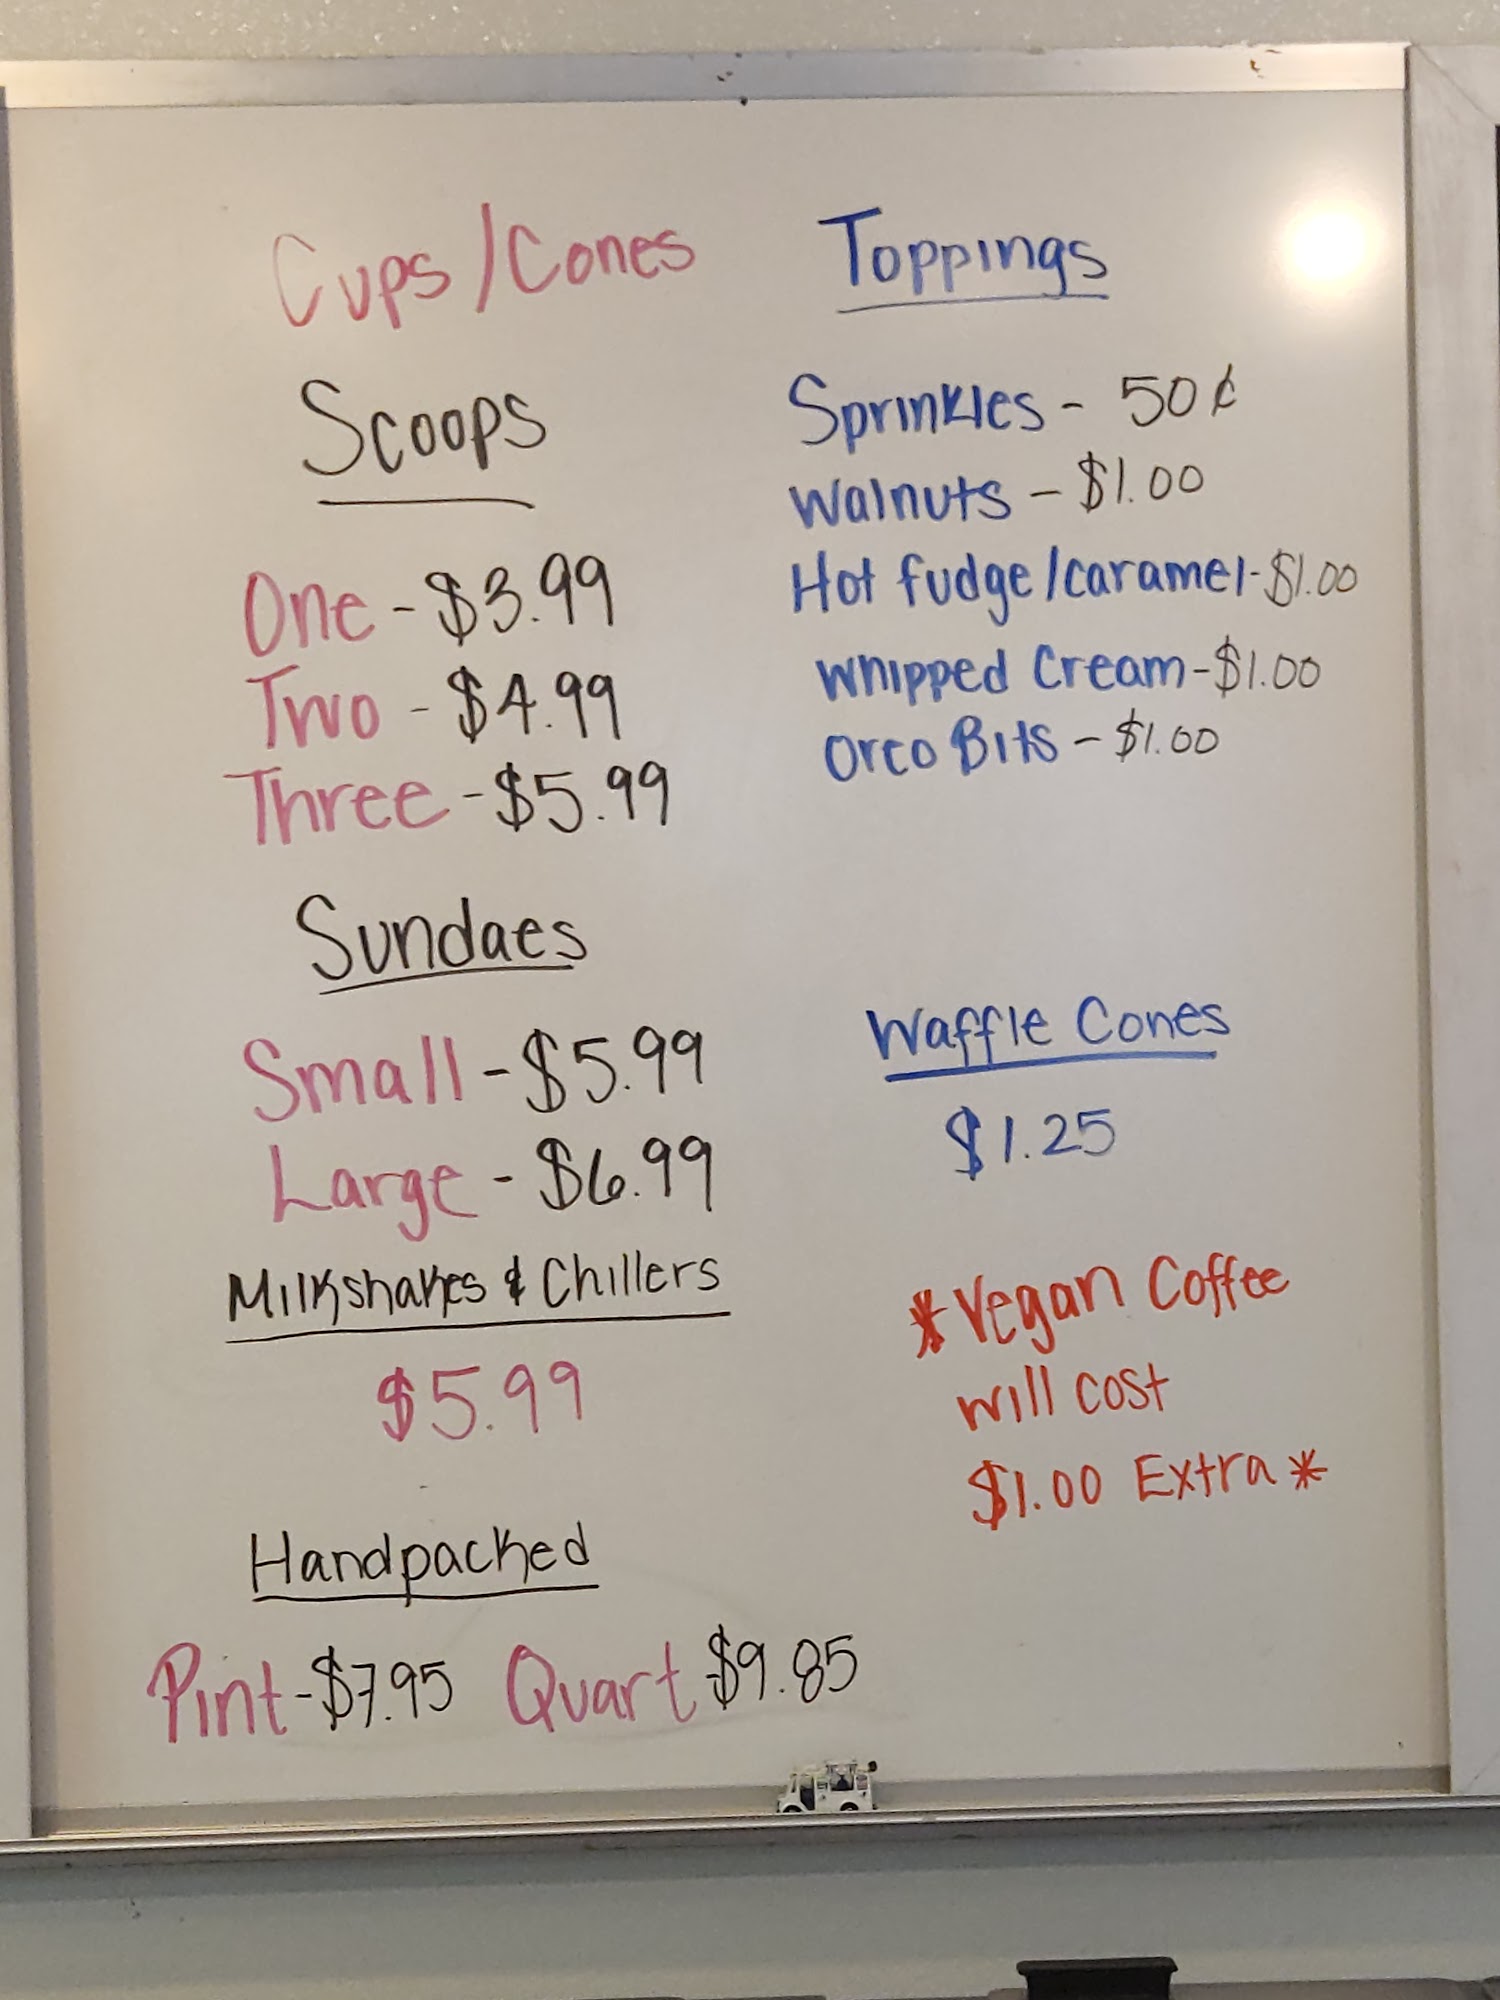 Cups/Cones
Scoops
One - $3.99
Two - $4.99
Three - $5.99
Sundaes
Small - $5.99
Large - $6.99
Milkshakes & Chillers
$5.99
Handpacked
Pint - $7.95 Quart $9.85
Toppings
Sprinkles - 50¢
Walnuts - $1.00
Hot fudge/caramel - $1.00
Whipped Cream - $1.00
Oreo Bits - $1.00
Waffle Cones
$1.25
*Vegan Coffee
will cost
$1.00 Extra*